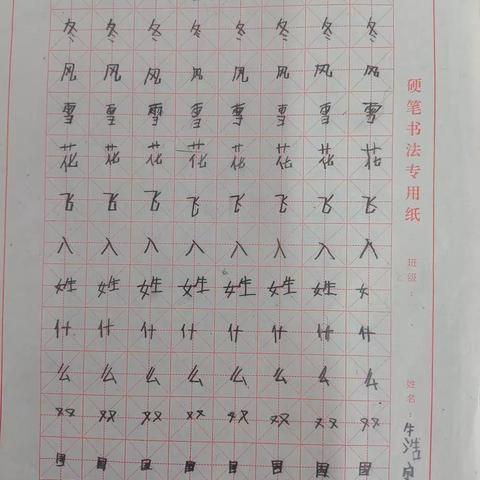 冬冬冬冬冬冬冬冬
风风风风风风风风
雪雪雪雪雪雪雪雪
花花花花花花花花
飞飞飞飞飞飞飞飞
入入入入入入入入
姓姓姓姓姓姓姓女
什什什什什什什什
么么么么么么么么
双双双双双双双双
国国国国国国国国
硬笔书法专用纸
班级：
姓名：牛浩